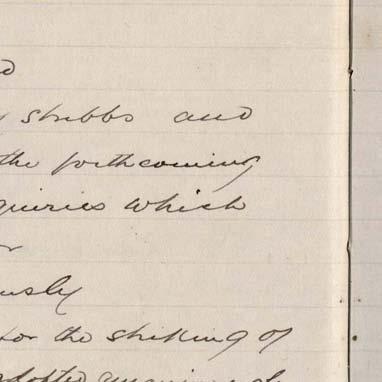 Stubbs and
the forthcoming
quiries which
usly
for the striking of